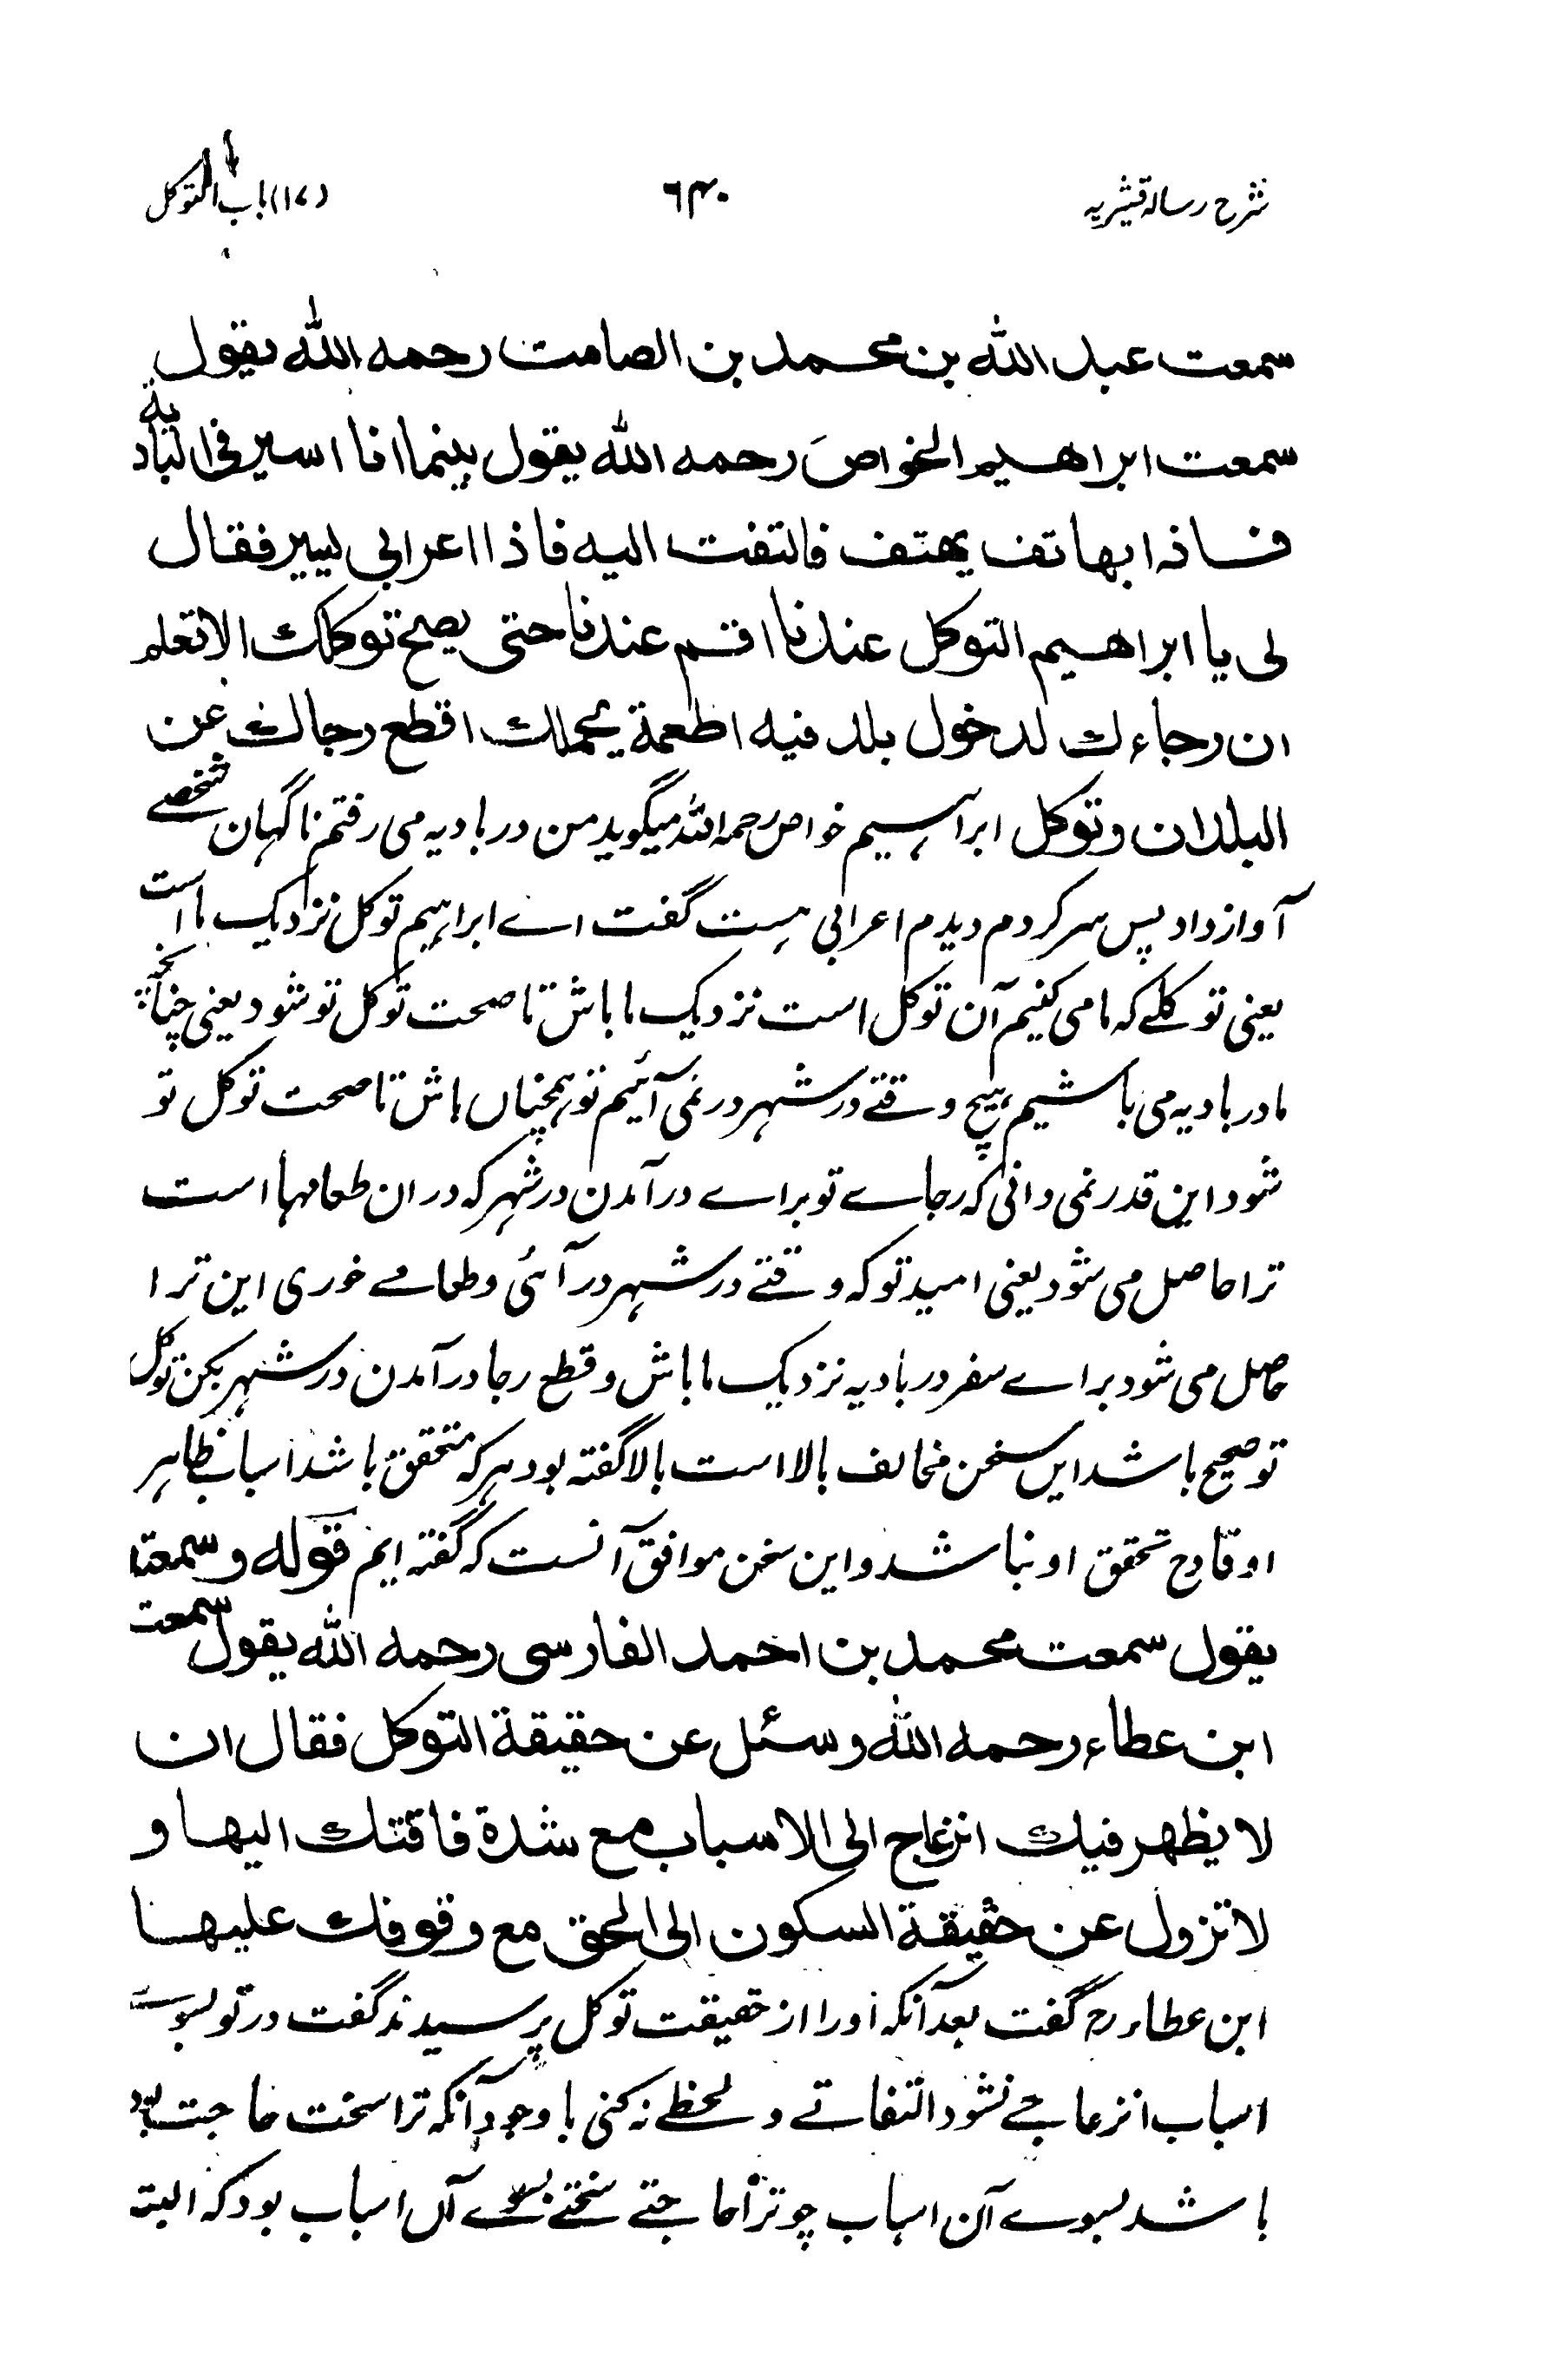 شرح رسالہ قشیریہ
۶۴۰
(۱۷) باب التوکل
سمعت عبد اللہ بن محمد بن الصامت رحمہ اللہ یقول
سمعت ابراھیم الخواصَ رحمہ اللہ یقول بینما انا اسیر فی البادیۃ
فاذا بھاتف یھتف فالتفت الیہ فاذا اعرابی یسیر فقال
لی یا ابراھیم التوکل عندنا اقم عندنا حتی یصح توکلک الا تعلم
ان رجاءک لدخول بلد فیہ اطعمۃ یحملک اقطع رجاک عن
البلدان وتوکل ابراہیم خواص رحمہ اللہ میگوید من در بادیہ می رفتم ناگہان شخصے
آواز داد پس سر کردم دیدم اعرابی ہست گفت اے ابراہیم توکل نزدیک ما است
یعنی توکلے کہ ما می کنیم آن توکل است نزدیک ما باش تا صحت توکل تو شود یعنی چنانچہ
ما در بادیہ می باشیم ہیچ وقتے در شہر در نمی آئیم تو ہمچناں باش تا صحت توکل تو
شود این قدر نمی دانی کہ رجاے تو براے در آمدن در شہر کہ دران طعامہا است
ترا حاصل می شود یعنی امید تو کہ وقتے در شہر در آئی و طعامے خوری این ترا
حاصل می شود براے سفر در بادیہ نزدیک ما باش و قطع رجا در آمدن در شہر بکن توکل
تو صحیح باشد ایں سخن مخالف بالا است بالا گفتہ بود ہر کہ متحقق باشد اسباب ظاہر
او قادح تحقق او نباشد و این سخن موافق آنست کہ گفتہ ایم قولہ وسمعتہ
یقول سمعت محمد بن احمد الفارسی رحمہ اللہ یقول سمعت
ابن عطاء رحمہ اللہ وسئل عن حقیقۃ التوکل فقال ان
لا یظھر فیک انزعاج الی الاسباب مع شدۃ فاقتک الیھا و
لا تزول عن حقیقۃ السکون الی الحق مع وقوفک علیھا
ابن عطاء رح گفت بعد آنکہ اورا از حقیقت توکل پرسیدند گفت در تو بسوے
اسباب انزعاجے نشود التفاتے و لحظے نہ کنی با وجود آنکہ ترا سخت حاجت بود
باشد بسوے آن اسباب چو ترا حاجتے سختے بسوے آں اسباب بود کہ البتہ